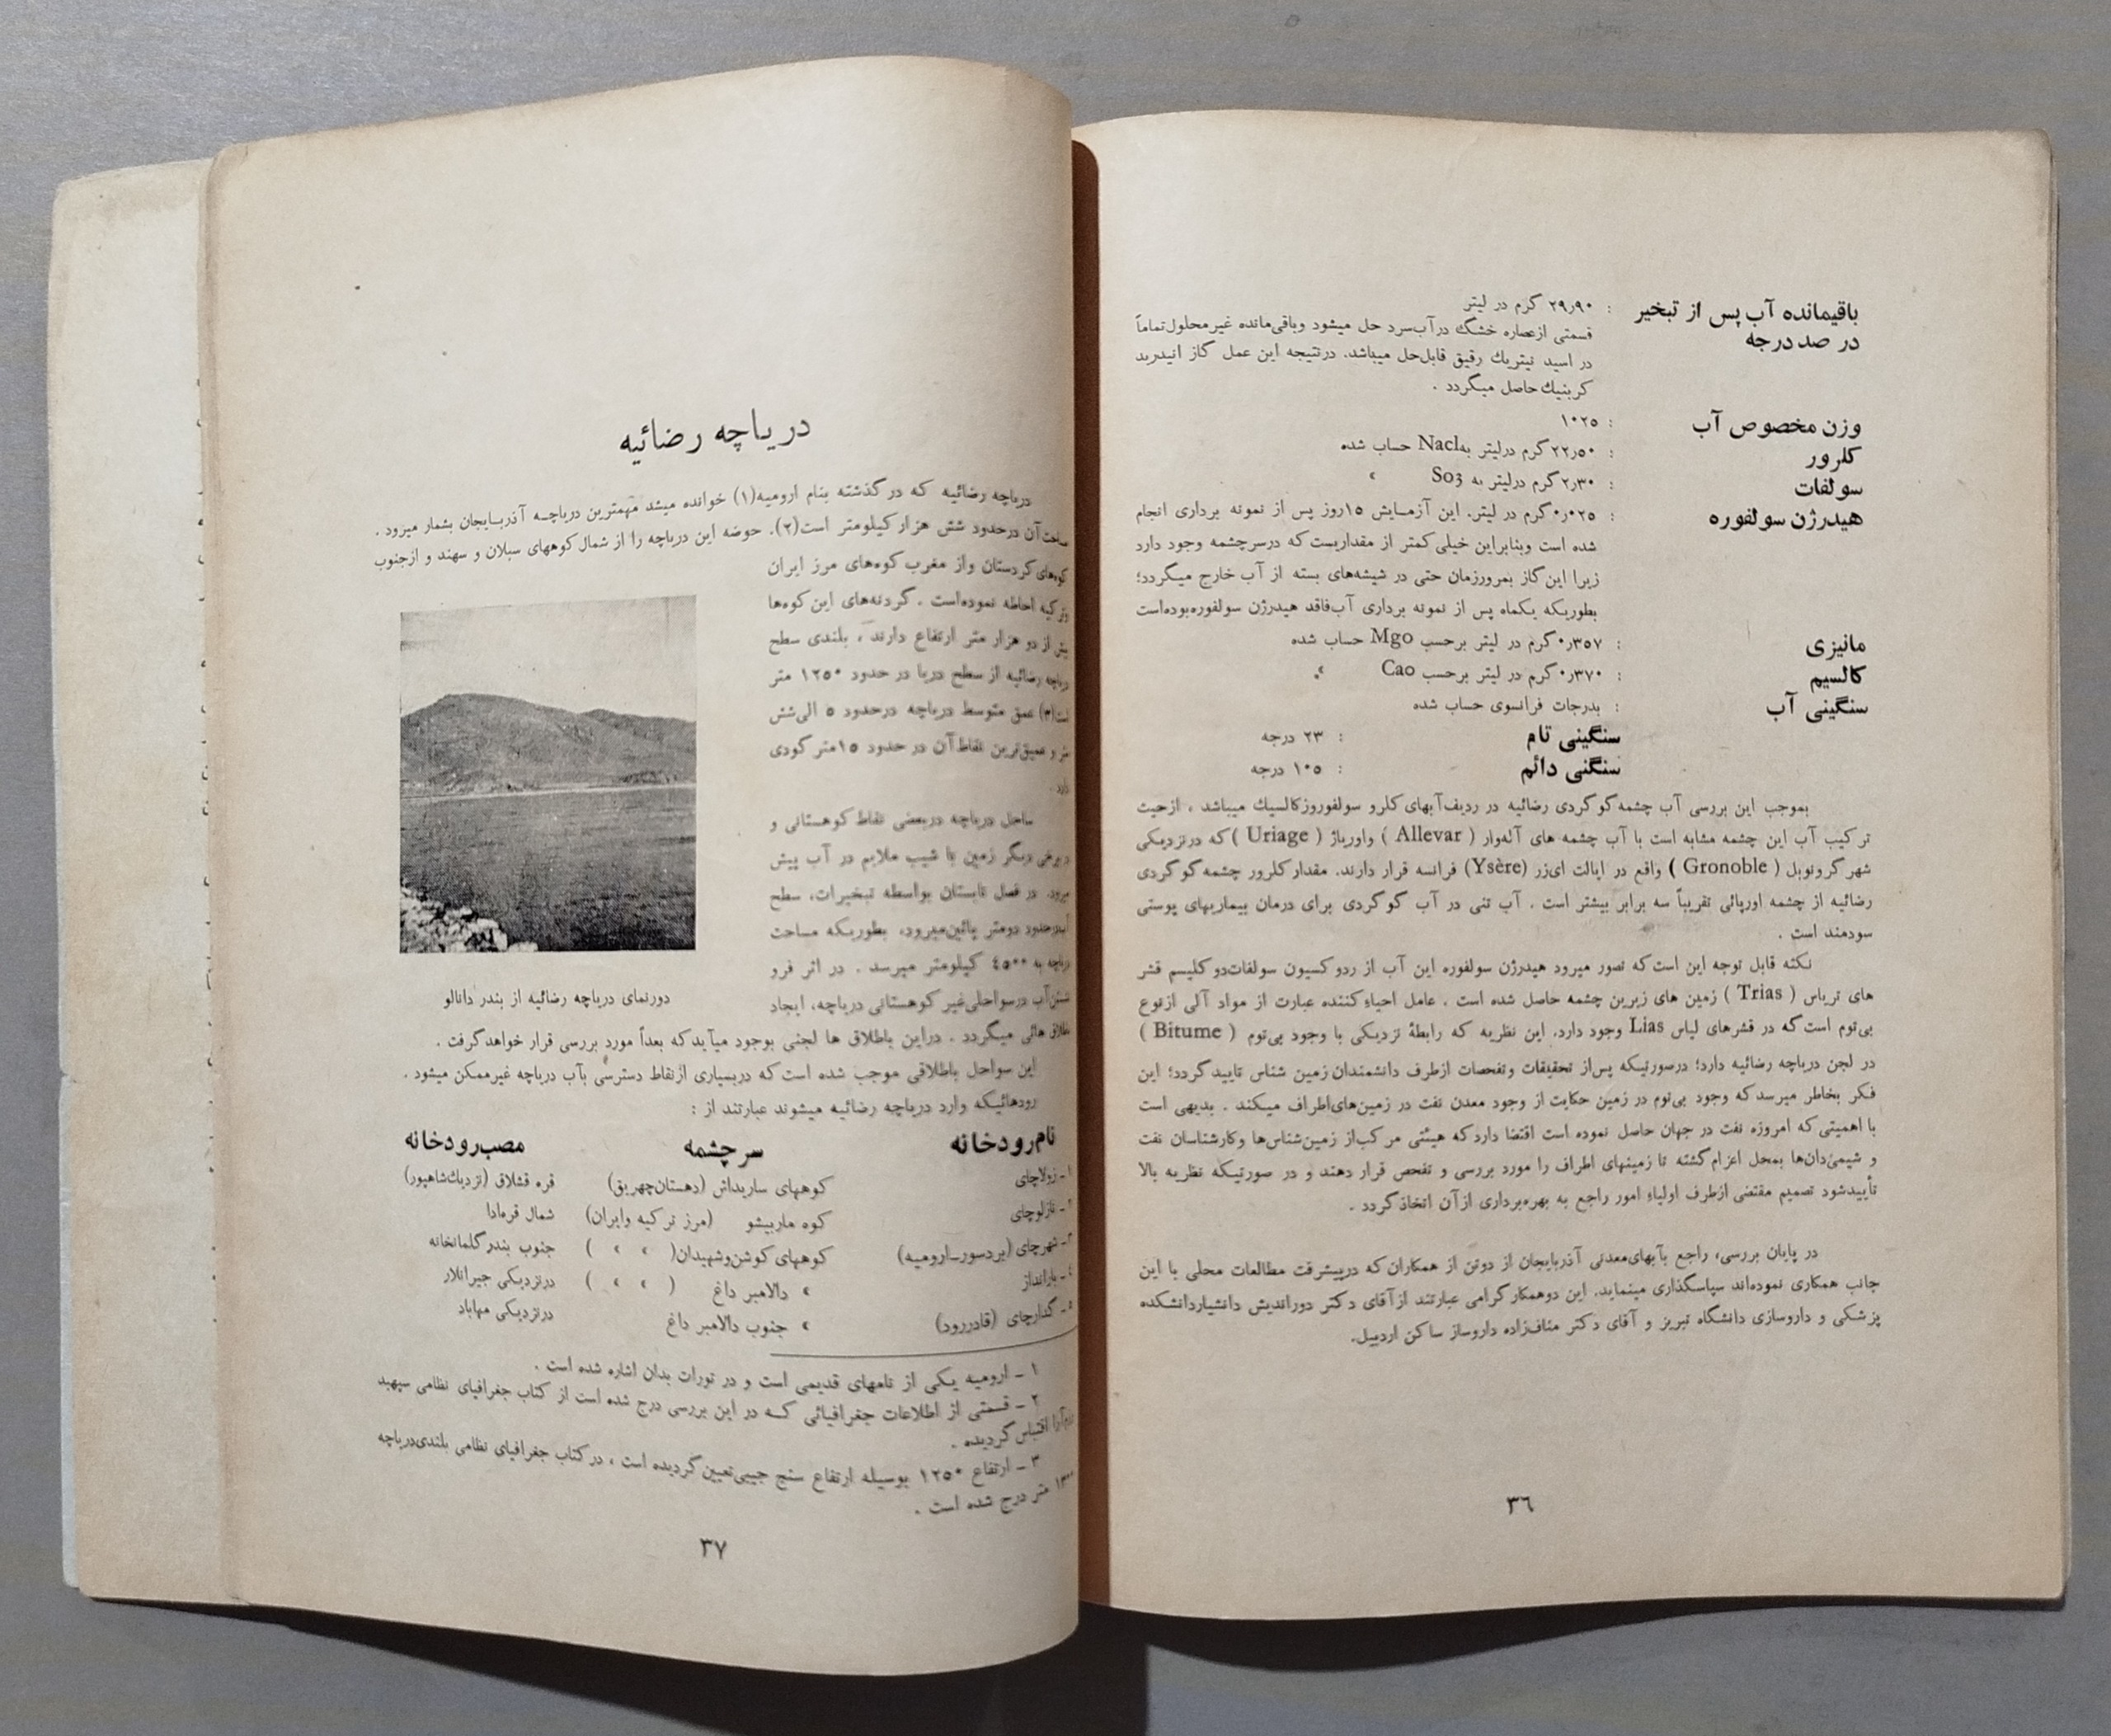 باقیمانده آب پس از تبخیر : ۲۹٫۹۰ گرم در لیتر
در صد درجه
قسمتی از عصاره خشك در آب سرد حل میشود و باقی‌مانده غیر محلول تماماً
در اسید نیتریك رقیق قابل حل میباشد. در نتیجه این عمل گاز انیدرید
كربنیك حاصل میگردد .
وزن مخصوص آب : ۱۰۲۵
كلرور : ۲۲٫۵۰ گرم در لیتر به Nacl حساب شده
سولفات : ۲٫۳۰ گرم در لیتر به So3 »
هیدرژن سولفوره : ۰٫۰۲۵ گرم در لیتر. این آزمـایش ۱۵ روز پس از نمونه برداری انجام
شده است و بنابراین خیلی كمتر از مقداریست كه در سرچشمه وجود دارد
زیرا این گاز بمرور زمان حتی در شیشه‌های بسته از آب خارج میگردد؛
بطوریكه یكماه پس از نمونه برداری آب فاقد هیدرژن سولفوره بوده است
مانیزی : ۰٫۳۵۷ گرم در لیتر برحسب Mgo حساب شده
كالسیم : ۰٫۳۷۰ گرم در لیتر برحسب Cao »
سنگینی آب : بدرجات فرانسوی حساب شده
سنگینی تام : ۲۳ درجه
سنگنی دائم : ۱۰۵ درجه
بموجب این بررسی آب چشمه گوگردی رضائیه در ردیف آبهای كلرو سولفوروز كالسیك میباشد ، از حیث
تركیب آب این چشمه مشابه است با آب چشمه های آله‌وار ( Allevar ) و اوریاژ ( Uriage ) كه در نزدیكی
شهر گرونوبل ( Gronoble ) واقع در ایالت ای‌زر (Ysère) فرانسه قرار دارند. مقدار كلرور چشمه گوگردی
رضائیه از چشمه اورپائی تقریباً سه برابر بیشتر است . آب تنی در آب گوگردی برای درمان بیماریهای پوستی
سودمند است .
نكته قابل توجه این است كه تصور میرود هیدرژن سولفوره این آب از ردوكسیون سولفات دو كلیسم قشر
های تریاس ( Trias ) زمین های زیرین چشمه حاصل شده است . عامل احیاء كننده عبارت از مواد آلی از نوع
بی‌توم است كه در قشرهای لیاس Lias وجود دارد. این نظریه كه رابطهٔ نزدیكی با وجود بی‌توم ( Bitume )
در لجن دریاچه رضائیه دارد؛ در صورتیكه پس از تحقیقات و تفحصات از طرف دانشمندان زمین شناس تایید گردد؛ این
فكر بخاطر میرسد كه وجود بی‌توم در زمین حكایت از وجود معدن نفت در زمین‌های اطراف میكند . بدیهی است
با اهمیتی كه امروزه نفت در جهان حاصل نموده است اقتضا دارد كه هیئتی مركب از زمین‌شناس‌ها و كارشناسان نفت
و شیمی‌دان‌ها بمحل اعزام گشته تا زمینهای اطراف را مورد بررسی و تفحص قرار دهند و در صورتیكه نظریه بالا
تأیید شود تصمیم مقتضی از طرف اولیاء امور راجع به بهره‌برداری از آن اتخاذ گردد .
در پایان بررسی، راجع بآبهای معدنی آذربایجان از دو تن از همكاران كه در پیشرفت مطالعات محلی با این
جانب همكاری نموده‌اند سپاسگذاری مینماید. این دو همكار گرامی عبارتند از آقای دكتر دوراندیش دانشیار دانشكده
پزشكی و داروسازی دانشگاه تبریز و آقای دكتر مناف‌زاده داروساز ساكن اردبیل.
۳۶
دریاچه رضائیه
دریاچه رضائیه كه در گذشته بنام ارومیه(۱) خوانده میشد مهمترین دریاچـه آذربـایجان بشمار میرود .
مساحت آن در حدود شش هزار كیلومتر است(۲). حوضه این دریاچه را از شمال كوههای سبلان و سهند و از جنوب
كوه‌های كردستان و از مغرب كوه‌های مرز ایران
و تركیه احاطه نموده است . گردنه‌های این كوه‌ها
بیش از دو هزار متر ارتفاع دارند ، بلندی سطح
دریاچه رضائیه از سطح دریا در حدود ۱۲۵۰ متر
است(۳) عمق متوسط دریاچه در حدود ۵ الی شش
متر و عمیق‌ترین نقاط آن در حدود ۱۵ متر گودی
دارد .
ساحل دریاچه در بعضی نقاط كوهستانی و
در برخی دیگر زمین با شیب ملایم در آب پیش
میرود. در فصل تابستان بواسطه تبخیرات، سطح
آب در حدود دو متر پائین میرود، بطوریكه مساحت
دریاچه به ۴۵۰۰ كیلومتر میرسد . در اثر فرو
نشستن آب در سواحلی غیر كوهستانی دریاچه، ایجاد
باطلاق هائی میگردد . در این باطلاق ها لجنی بوجود میآید كه بعداً مورد بررسی قرار خواهد گرفت .
دورنمای دریاچه رضائیه از بندر دانالو
این سواحل باطلاقی موجب شده است كه در بسیاری از نقاط دسترسی بآب دریاچه غیر ممكن میشود .
رودهائیكه وارد دریاچه رضائیه میشوند عبارتند از :
نام رودخانه سرچشمه مصب رودخانه
۱ ـ زولاچای كوههای ساریداش (دهستان چهریق) قره قشلاق (نزدیك شاهپور)
۲ ـ نازلوچای كوه ماربیشو (مرز تركیه و ایران) شمال
۳ ـ شهرچای (بردسور ـ ارومیه) كوههای كوشن و شهیدان ( » » ) جنوب بندر گلمانخانه
۴ ـ باراندﺍز » دالامبر داغ ( » » ) در نزدیكی جیرانلار
۵ ـ گدارچای (قادر رود) » جنوب دالامبر داغ در نزدیكی مهاباد
۱ ـ ارومیه یكی از نامهای قدیمی است و در تورات بدان اشاره شده است .
۲ ـ قسمتی از اطلاعات جغرافیائی كـه در این بررسی درج شده است از كتاب جغرافیای نظامی سپهبد
رزم‌آرا اقتباس گردیده .
۳ ـ ارتفاع ۱۲۵۰ بوسیله ارتفاع سنج جیبی تعیین گردیده است ، در كتاب جغرافیای نظامی بلندی دریاچه
۱۳۰۰ متر درج شده است .
۳۷